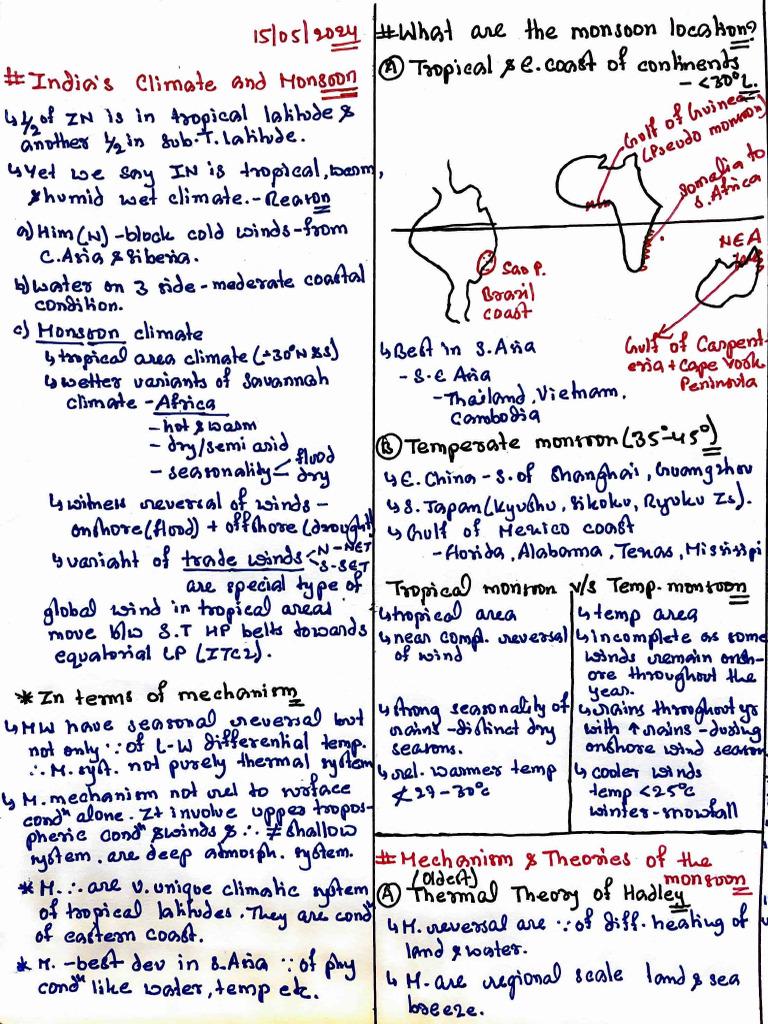 15/05/2024
# India's Climate and Monsoon
↳ 1/2 of IN is in tropical latitude &
another 1/2 in sub.T. latitude.
↳ Yet we say IN is tropical, warm,
& humid wet climate. - Reason
a) Him (N) - block cold winds - from
C. Asia & Siberia.
b) water on 3 side - moderate coastal
condition.
c) Monsoon climate
↳ tropical area climate (-30°N&S)
↳ wetter variants of Savannah
climate - Africa
- hot & warm
- dry/semi arid
- seasonality < flood
dry
↳ witness reversal of winds -
onshore (flood) + offshore (drought)
↳ variant of trade winds < N-NET
S-SET
are special type of
global wind in tropical areas
move b/w S.T HP belts towards
equatorial LP (ITCZ).
* In terms of mechanism
↳ MW have seasonal reversal but
not only ∵ of L-W differential temp.
∴ M. syst. not purely thermal system
↳ M. mechanism not rel to surface
condⁿ alone. It involve upper tropos-
pheric condⁿ & winds & ∴ ≠ shallow
system. are deep atmosph. system.
* M. ∴ are v. unique climatic system
of tropical latitudes. They are condⁿ
of eastern coast.
* M. - best dev in S.Asia ∵ of phy
condⁿ like water, temp etc.
# What are the monsoon location?
(A) Tropical & E. coast of continents
- <30°L.
Gulf of Guinea
(Pseudo monsoon)
Somalia to
S. Africa
Sao P.
Brazil
coast
NEA
Gulf of Carpent-
eria + Cape York
Peninsula
↳ Best in S. Asia
- S.E Asia
- Thailand, Vietnam,
Cambodia
(B) Temperate monsoon (35°-45°)
↳ E. China - S. of Shanghai, Guangzhou
↳ S. Japan (Kyushu, Sikoku, Ryuku Is).
↳ Gulf of Mexico coast
- Florida, Alabama, Texas, Mississipi
Tropical monsoon v/s Temp. monsoon
↳ tropical area
↳ near compl. reversal
of wind
↳ strong seasonality of
rains - distinct dry
seasons.
↳ rel. warmer temp
< 29-30°c
↳ temp area
↳ incomplete as some
winds remain onsh-
ore throughout the
year.
↳ rains throughout yr
with ↑ rains - during
onshore wind season
↳ cooler winds
temp <25°c
winter-snowfall
# Mechanism & Theories of the
monsoon
(Oldest)
(A) Thermal Theory of Hadley
↳ M. reversal are ∵ of diff. heating of
land & water.
↳ M. are regional scale land & sea
breeze.